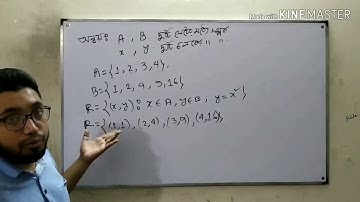 Made With KINEMASTER
অন্বয়ঃ A, B দুটি সেটের মধ্যে
x, y দুটি চলকের " "
A = {1, 2, 3, 4}
B = {1, 2, 4, 9, 16}
R = {(x, y) : x ∈ A, y ∈ B, y = x²}
R = {(1, 1), (2, 4), (3, 9), (4, 16)}